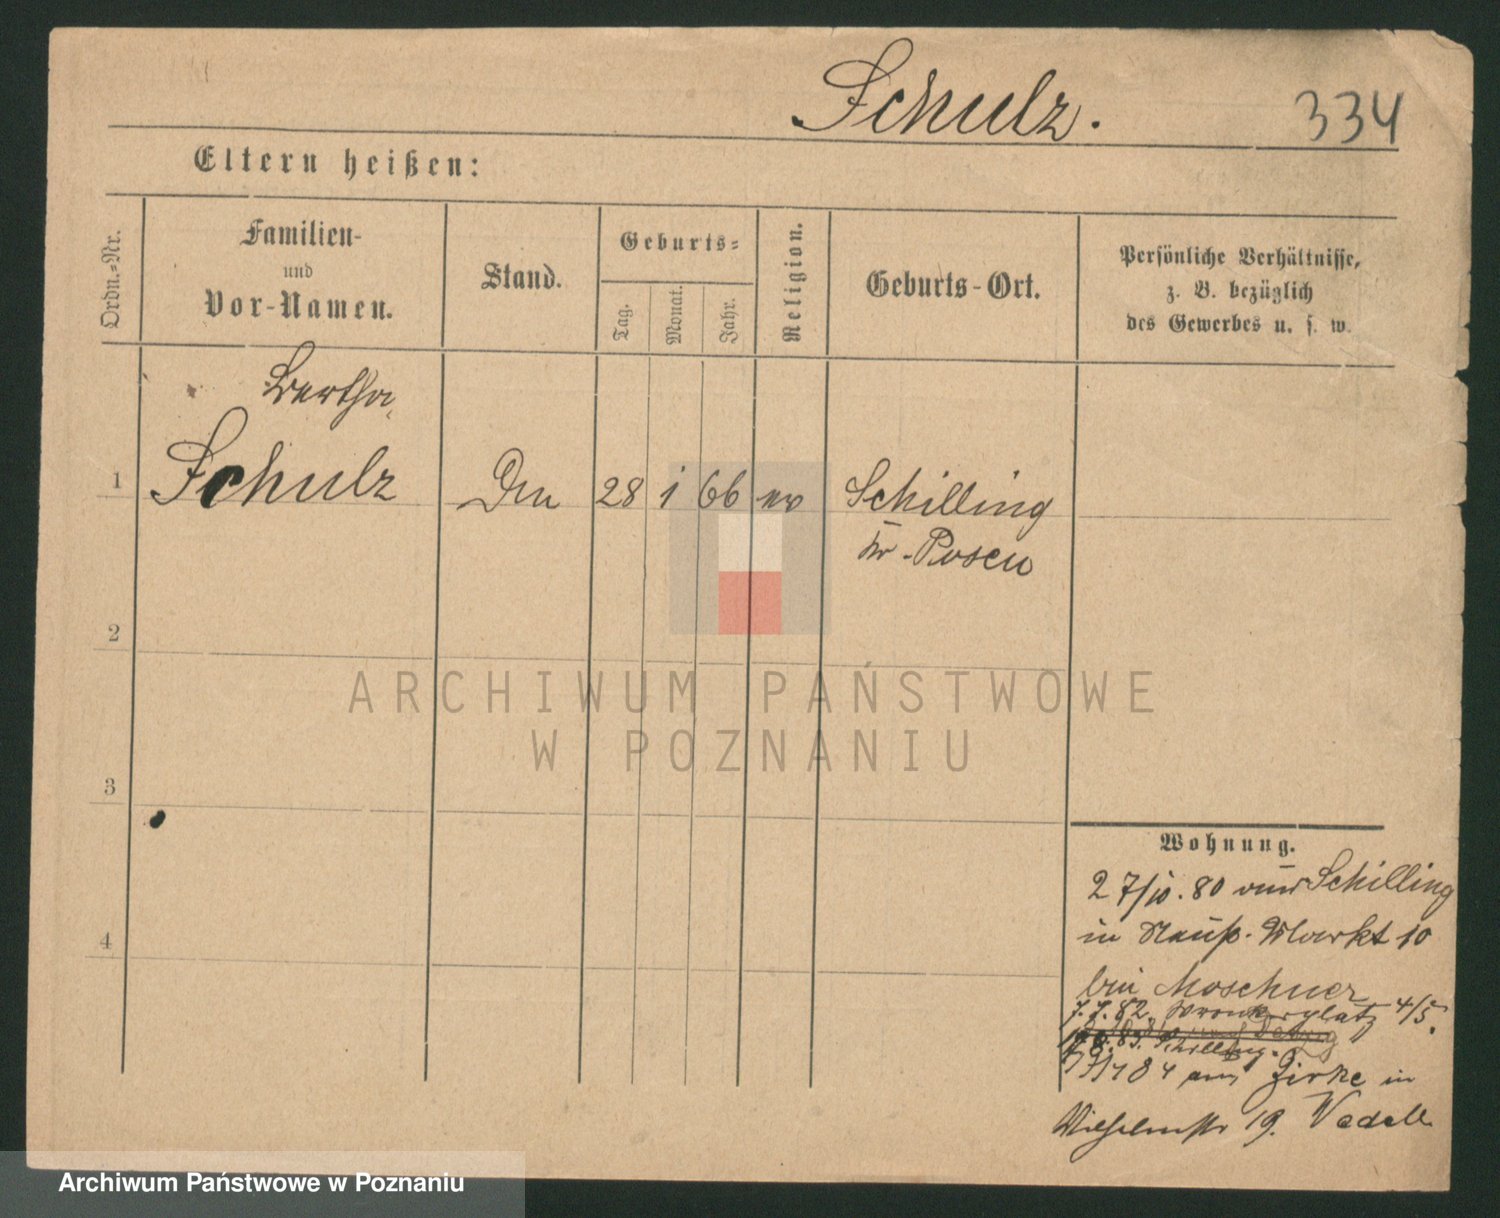 Schulz.
334
Eltern heißen:
Ordn.-Nr.
Familien-
und
Vor-Namen.
Stand.
Geburts-
Tag.
Monat.
Jahr.
Religion.
Geburts-Ort.
Persönliche Verhältnisse,
z. B. bezüglich
des Gewerbes u. s. w.
Bertha
1 Schulz Dm 28 1 66 ev Schilling
Kr. Posen
2
3
4
ARCHIWUM PAŃSTWOWE
W POZNANIU
Wohnung.
27/10. 80 von Schilling
in Markt 10
bei Moschner
7.7.82. Wronkerplatz 4/5.
83. Schilling.
84 aus Zirke in
Wilhelmstr 19. Wedell
Archiwum Państwowe w Poznaniu